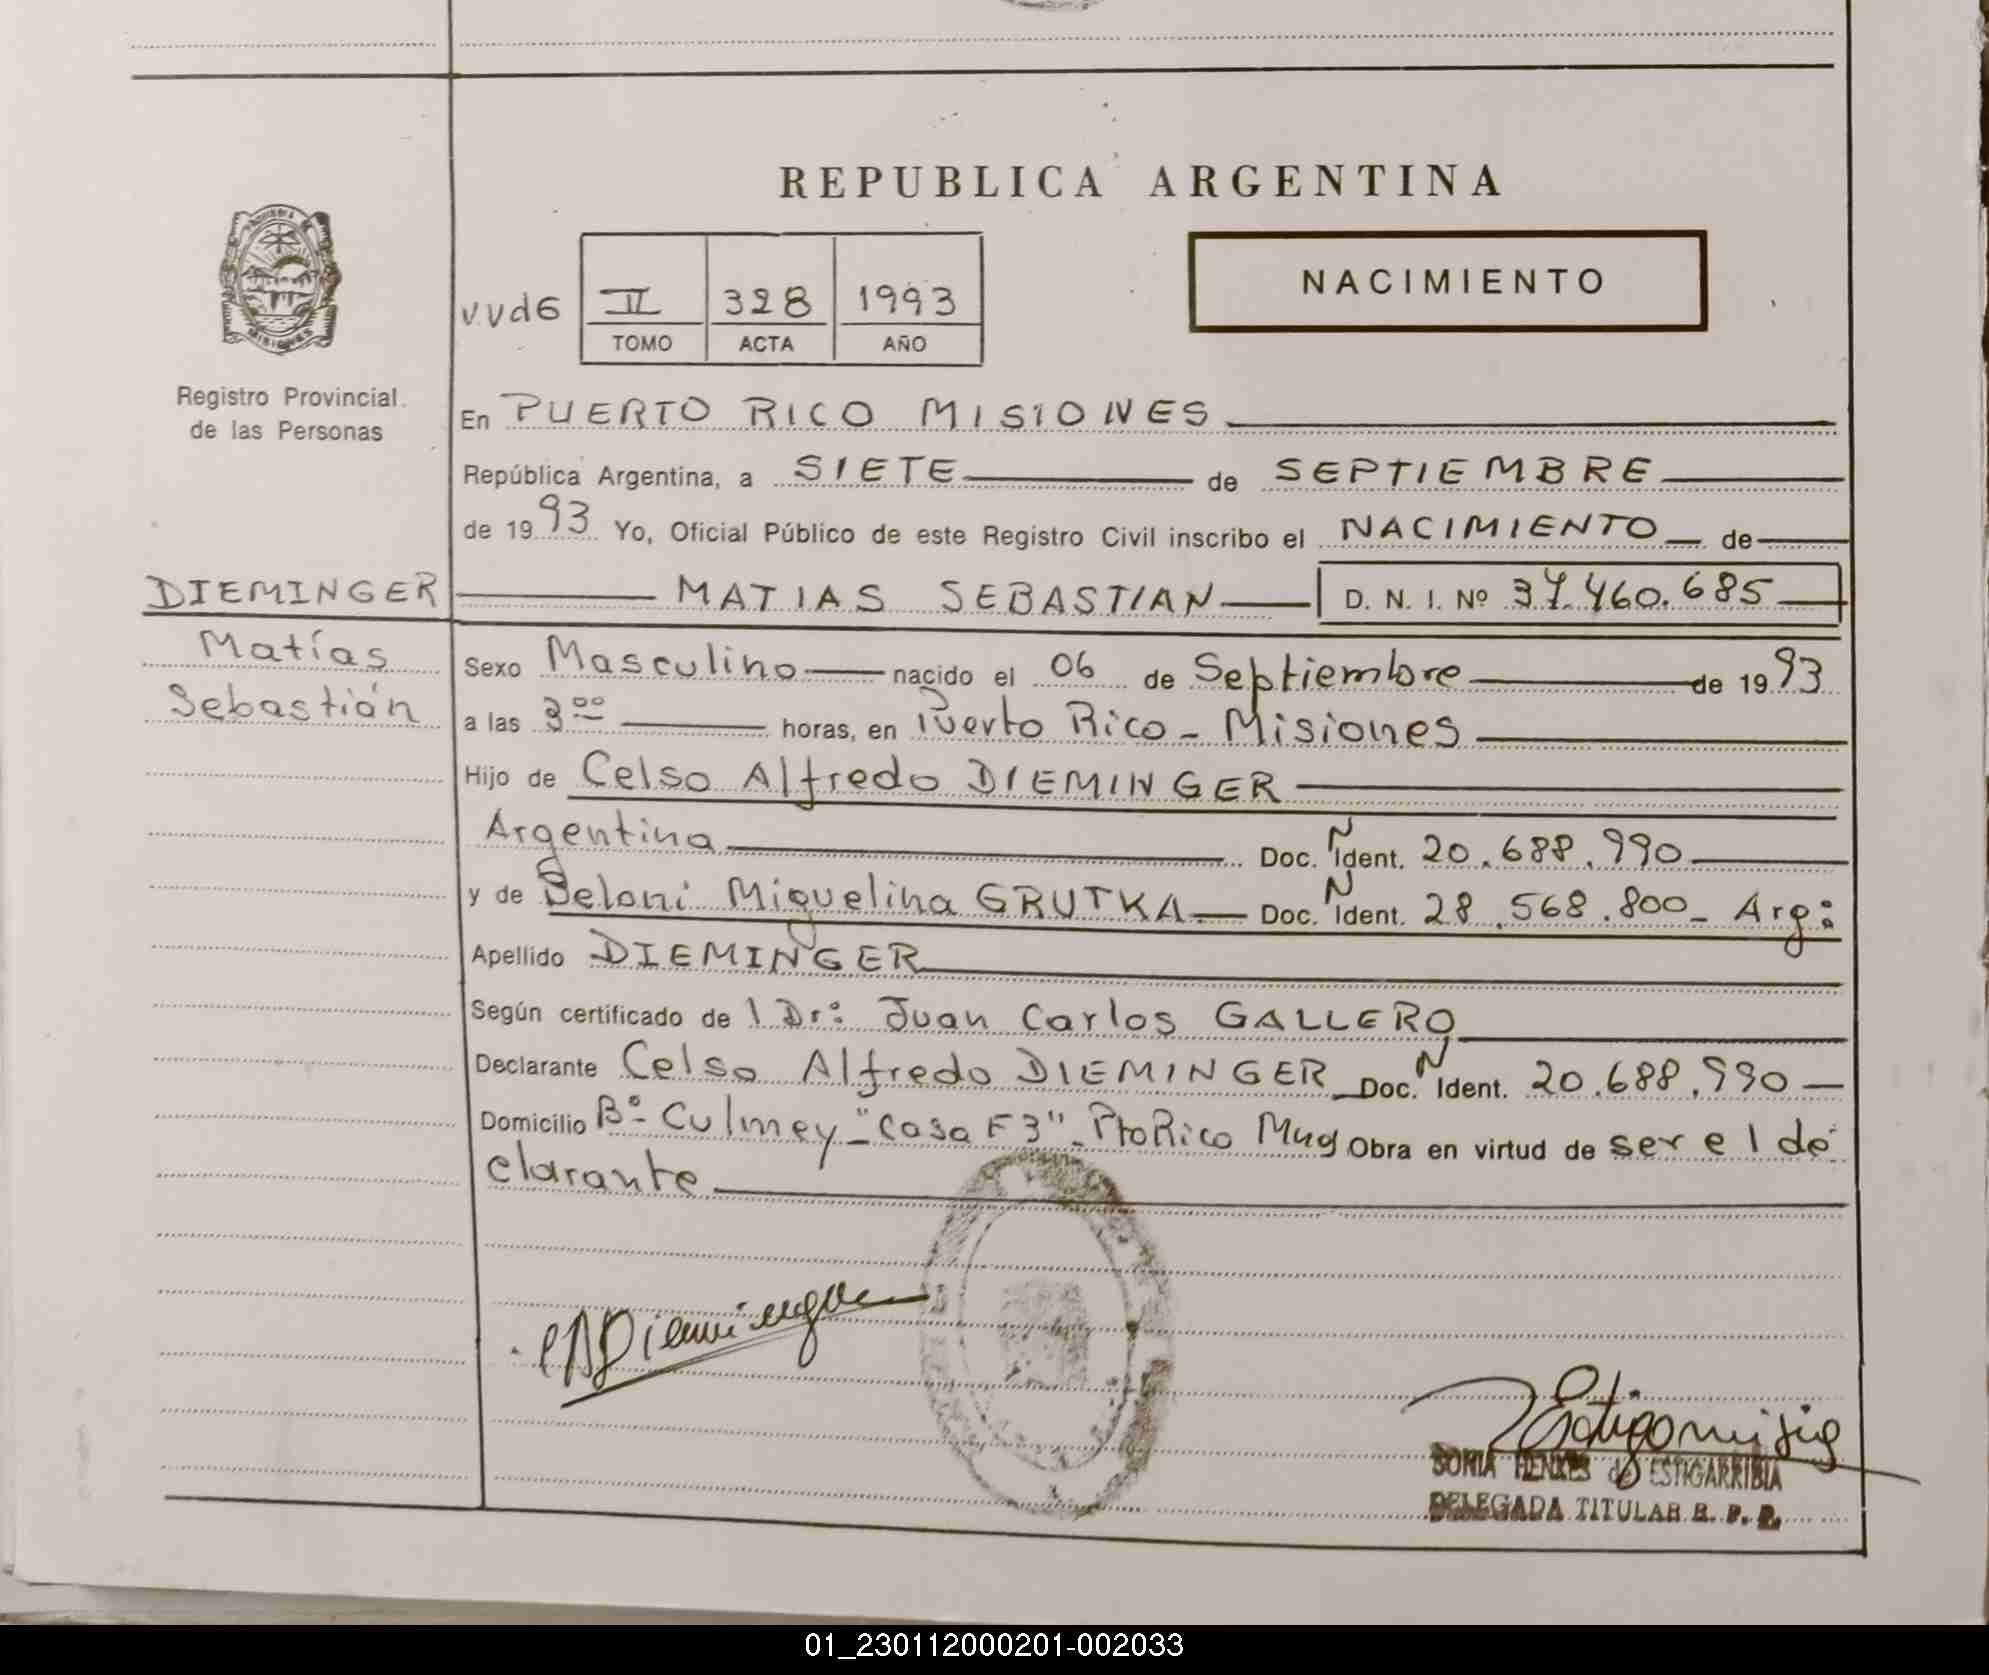 REPUBLICA ARGENTINA
NACIMIENTO
vvd6 II 328 1993
TOMO ACTA AÑO
MISIONES
Registro Provincial
de las Personas
En PUERTO RICO MISIONES
República Argentina, a SIETE de SEPTIEMBRE
de 1993 Yo, Oficial Público de este Registro Civil inscribo el NACIMIENTO de
DIEMINGER MATIAS SEBASTIAN D. N. I. Nº 37.460.685
Matías
Sebastián
Sexo Masculino nacido el 06 de Septiembre de 1993
a las 3 00 horas, en Puerto Rico - Misiones
Hijo de Celso Alfredo DIEMINGER
Argentina Doc. N Ident. 20.688.990
y de Beloni Miquelina GRUTKA Doc. N Ident. 28.568.800 - Arg:
Apellido DIEMINGER
Según certificado de l Dr: Juan Carlos GALLERO
Declarante Celso Alfredo DIEMINGER Doc. N Ident. 20.688.990
Domicilio Bº Culmey - "Casa F3" - Pto Rico Mnes Obra en virtud de ser el de
clarante
CADieminger
SONIA HENKES de ESTIGARRIBIA
DELEGADA TITULAR R. P. P.
01_230112000201-002033